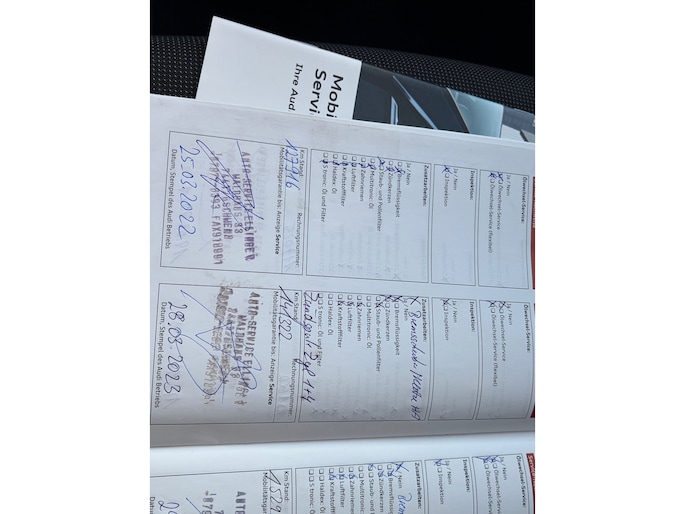 Mobi
Servi
Ihre Aud
Ölwechsel-Service:
Ja / Nein
Ölwechsel-Service
Ölwechsel-Service (flexibel)
Inspektion:
Ja / Nein
Inspektion
Zusatzarbeiten:
Ja / Nein
Bremsflüssigkeit
Zündkerzen
Staub- und Pollenfilter
Multitronic: Öl
Zahnriemen
Luftfilter
Kraftstofffilter
Haldex: Öl
S tronic: Öl und Filter
Km Stand: Rechnungsnummer:
127916
Mobilitätsgarantie bis: Anzeige Service
AUTO-SERVICE ELSINGER
WALDHAUS 33
FAX910001
25.03.2022
Datum, Stempel des Audi Betriebs
Ölwechsel-Service:
Ja / Nein
Ölwechsel-Service
Ölwechsel-Service (flexibel)
Inspektion:
Ja / Nein
Inspektion
Zusatzarbeiten:
Ja / Nein
Bremsflüssigkeit
Zündkerzen
Staub- und Pollenfilter
Multitronic: Öl
Zahnriemen
Luftfilter
Kraftstofffilter
Haldex: Öl
S tronic: Öl und Filter
Km Stand: Rechnungsnummer:
141322
Mobilitätsgarantie bis: Anzeige Service
AUTO-SERVICE ELSINGER
WALDHAUS 33
28.03.2023
Datum, Stempel des Audi Betriebs
Ölwechsel-Service:
Ja / Nein
Ölwechsel-Service
Ölwechsel-Service
Inspektion:
Ja / Nein
Inspektion
Zusatzarbeiten:
Ja / Nein
Bremsflüssigkeit
Zündkerzen
Staub- und
Multitronic:
Zahnriemen
Luftfilter
Kraftstofff
Haldex: Öl
S tronic: Öl
Km Stand:
1529
Mobilitätsgarant
AUTO